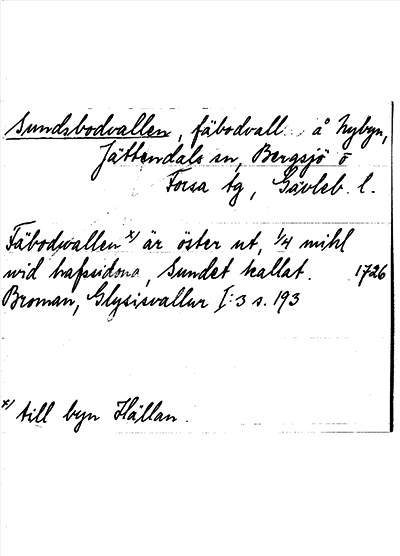 Sundsbodvallen, fäbodvall å Nybyn,
Jättendals sn, Bergsjö o
Forsa tg, Gävleb. l.
Fäbodwallen x) är öster ut, 1/4 mihl
wid hafssidona, Sundet kallat. 1726
Broman, Glysisvallur I:3 s. 193
x) till byn Hällan.